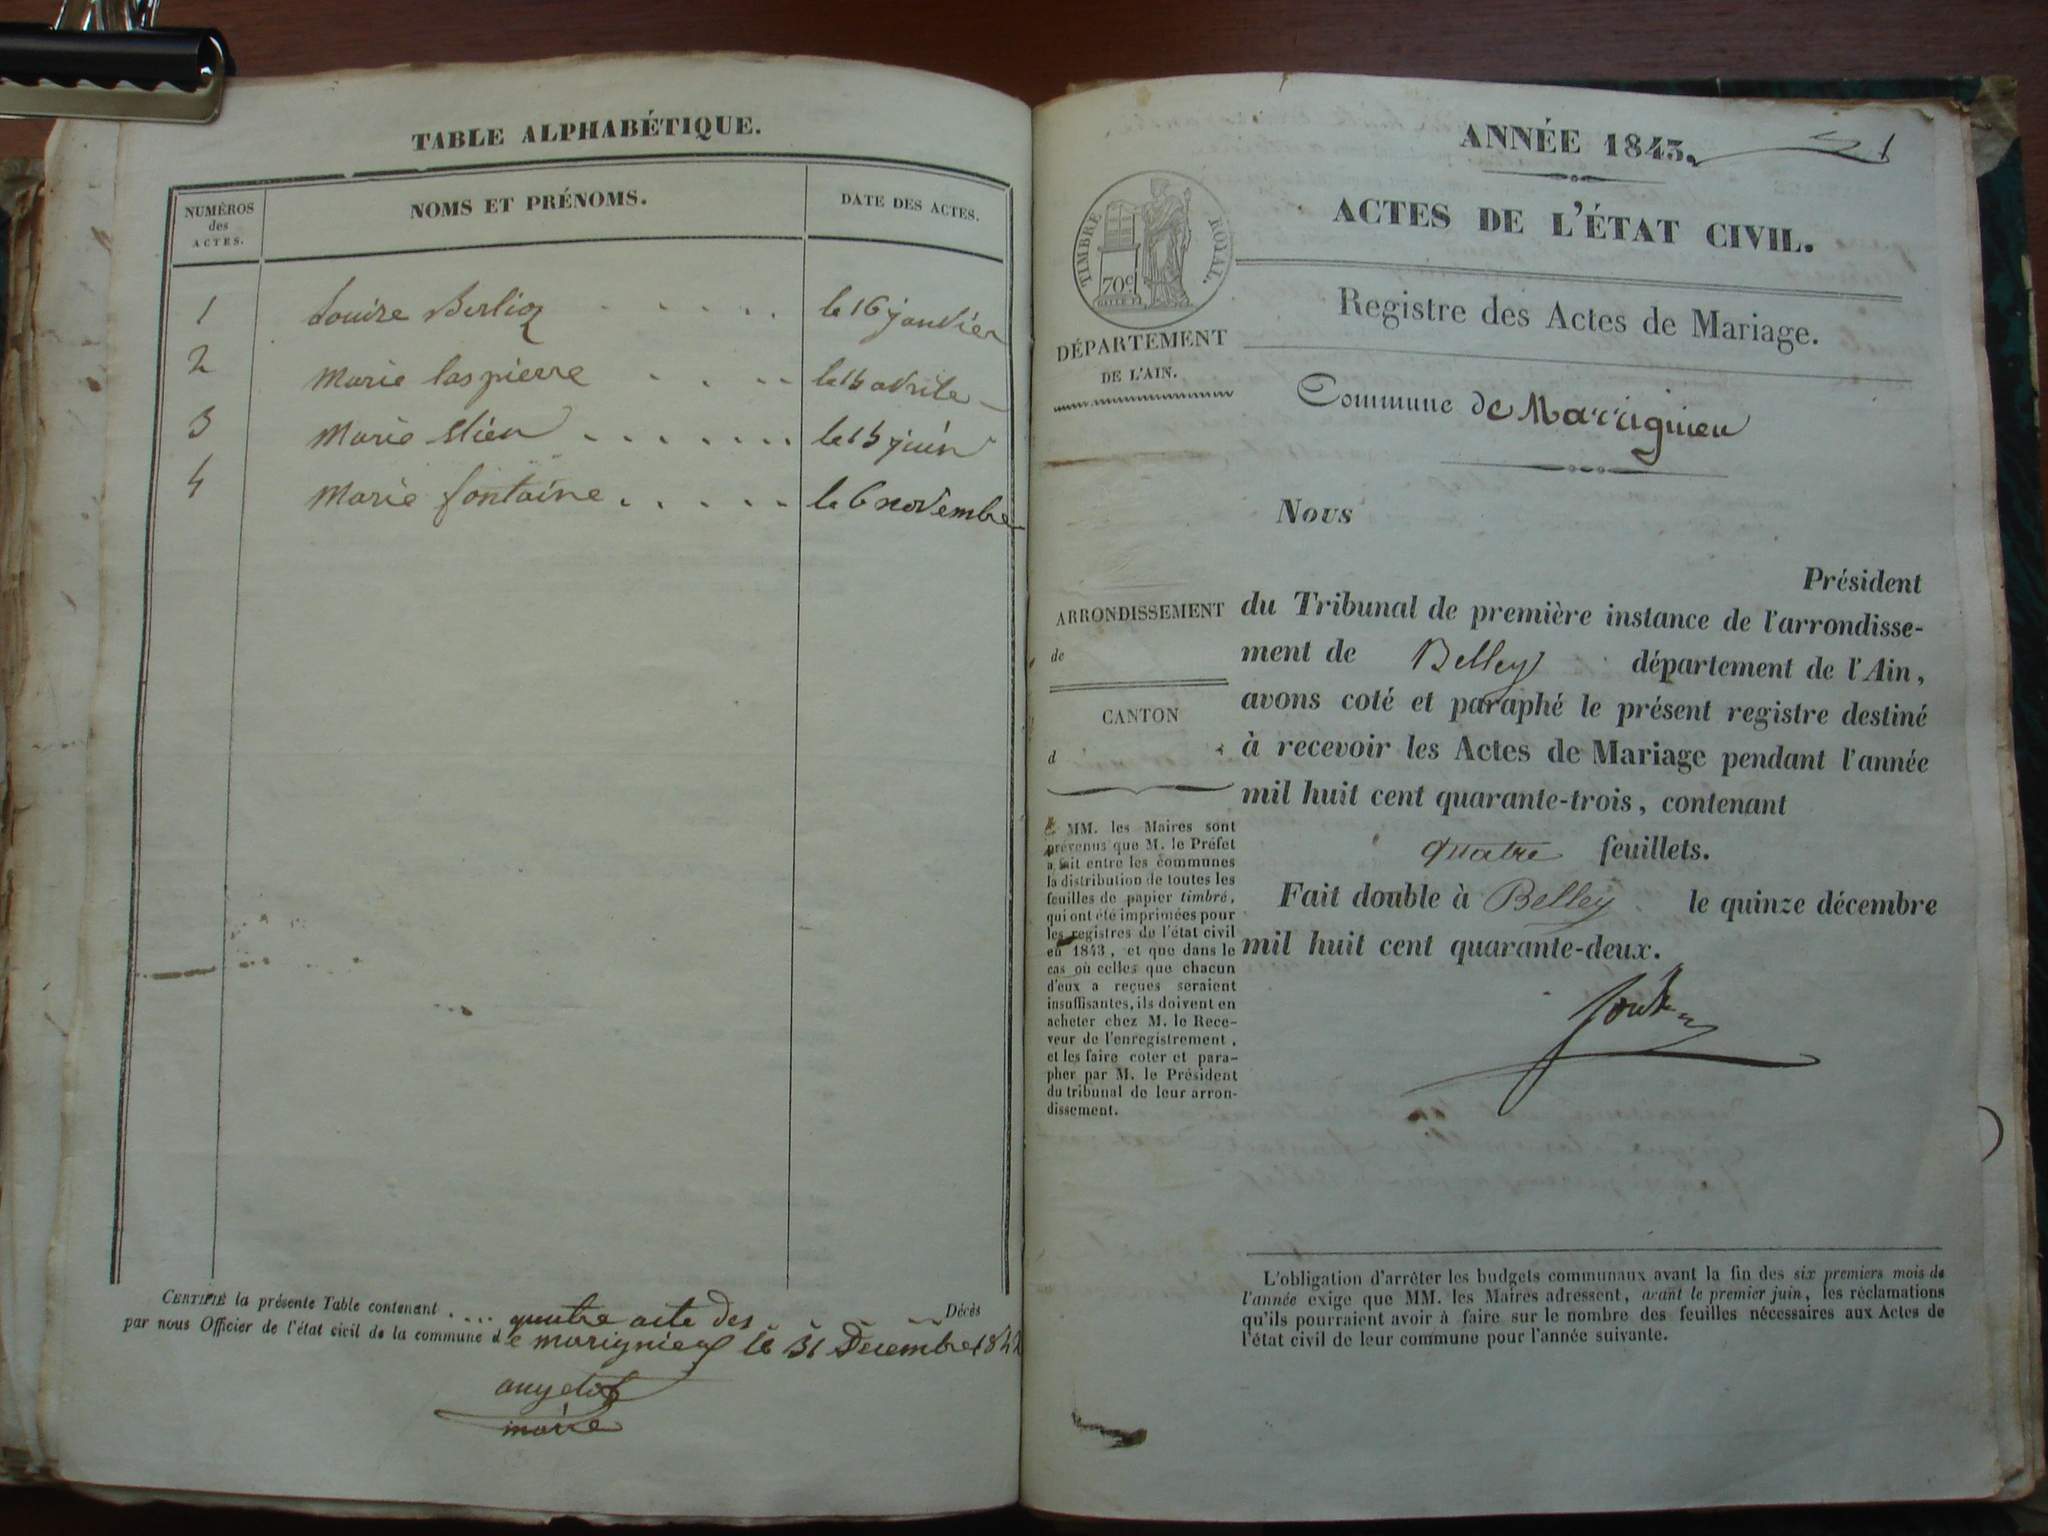 TABLE ALPHABÉTIQUE.
NUMÉROS
des
ACTES.
NOMS ET PRÉNOMS.
DATE DES ACTES.
1 Louize Berlioz le 16 janvier
2 Marie laspierre
3 Marie le 15 juin
4 Marie fontaine le 6 novembre
CERTIFIÉ la présente Table contenant quatre acte des Décès
par nous Officier de l'état civil de la commune de marignieu le 31 Décembre 1842
maire
ANNÉE 1843. 1
ACTES DE L'ÉTAT CIVIL.
TIMBRE ROYAL.
70c
Registre des Actes de Mariage.
DÉPARTEMENT
DE L'AIN.
Commune de Marignieu
Nous
Président
ARRONDISSEMENT
de
CANTON
d
du Tribunal de première instance de l'arrondisse-
ment de Belley département de l'Ain,
avons coté et paraphé le présent registre destiné
à recevoir les Actes de Mariage pendant l'année
mil huit cent quarante-trois, contenant
quatre feuillets.
Fait double à Belley le quinze décembre
mil huit cent quarante-deux.
MM. les Maires sont
prévenus que M. le Préfet
a fait entre les communes
la distribution de toutes les
feuilles de papier timbré,
qui ont été imprimées pour
les registres de l'état civil
en 1843, et que dans le
cas où celles que chacun
d'eux a reçues seraient
insuffisantes, ils doivent en
acheter chez M. le Rece-
veur de l'enregistrement,
et les faire coter et para-
pher par M. le Président
du tribunal de leur arron-
dissement.
L'obligation d'arrêter les budgets communaux avant la fin des six premiers mois de
l'année exige que MM. les Maires adressent, avant le premier juin, les réclamations
qu'ils pourraient avoir à faire sur le nombre des feuilles nécessaires aux Actes de
l'état civil de leur commune pour l'année suivante.